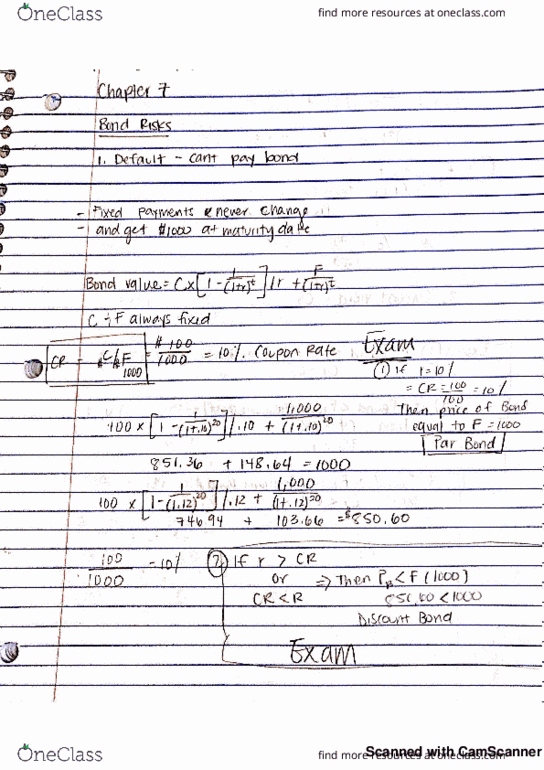 OneClass
find more resources at oneclass.com
Chapter 7
Bond Risks
1. Default - cant pay bond
- Fixed payments & never change
- and get $1000 at maturity date
Bond value = C x [1 - 1/(1+r)^t] / r + F/(1+r)^t
C ÷ F always fixed
CR = C/F 1000 = $100/1000 = 10%. Coupon Rate Exam
① If r=10%
= CR = 100/100 = 10%
Then price of Bond
equal to F = 1000
Par Bond
100 x [1 - 1/(1+.10)^20] / .10 + 1,000/(1+.10)^20
851.36 + 148.64 = 1000
100 x [1 - 1/(1.12)^20] / .12 + 1,000/(1+.12)^20
746.94 + 103.66 = $850.60
100/1000 = 10% ② If r > CR
or ⇒ Then PB < F (1000)
CR < R 851.60 < 1000
Discount Bond
Exam
OneClass
find more resources at oneclass.com
Scanned with CamScanner